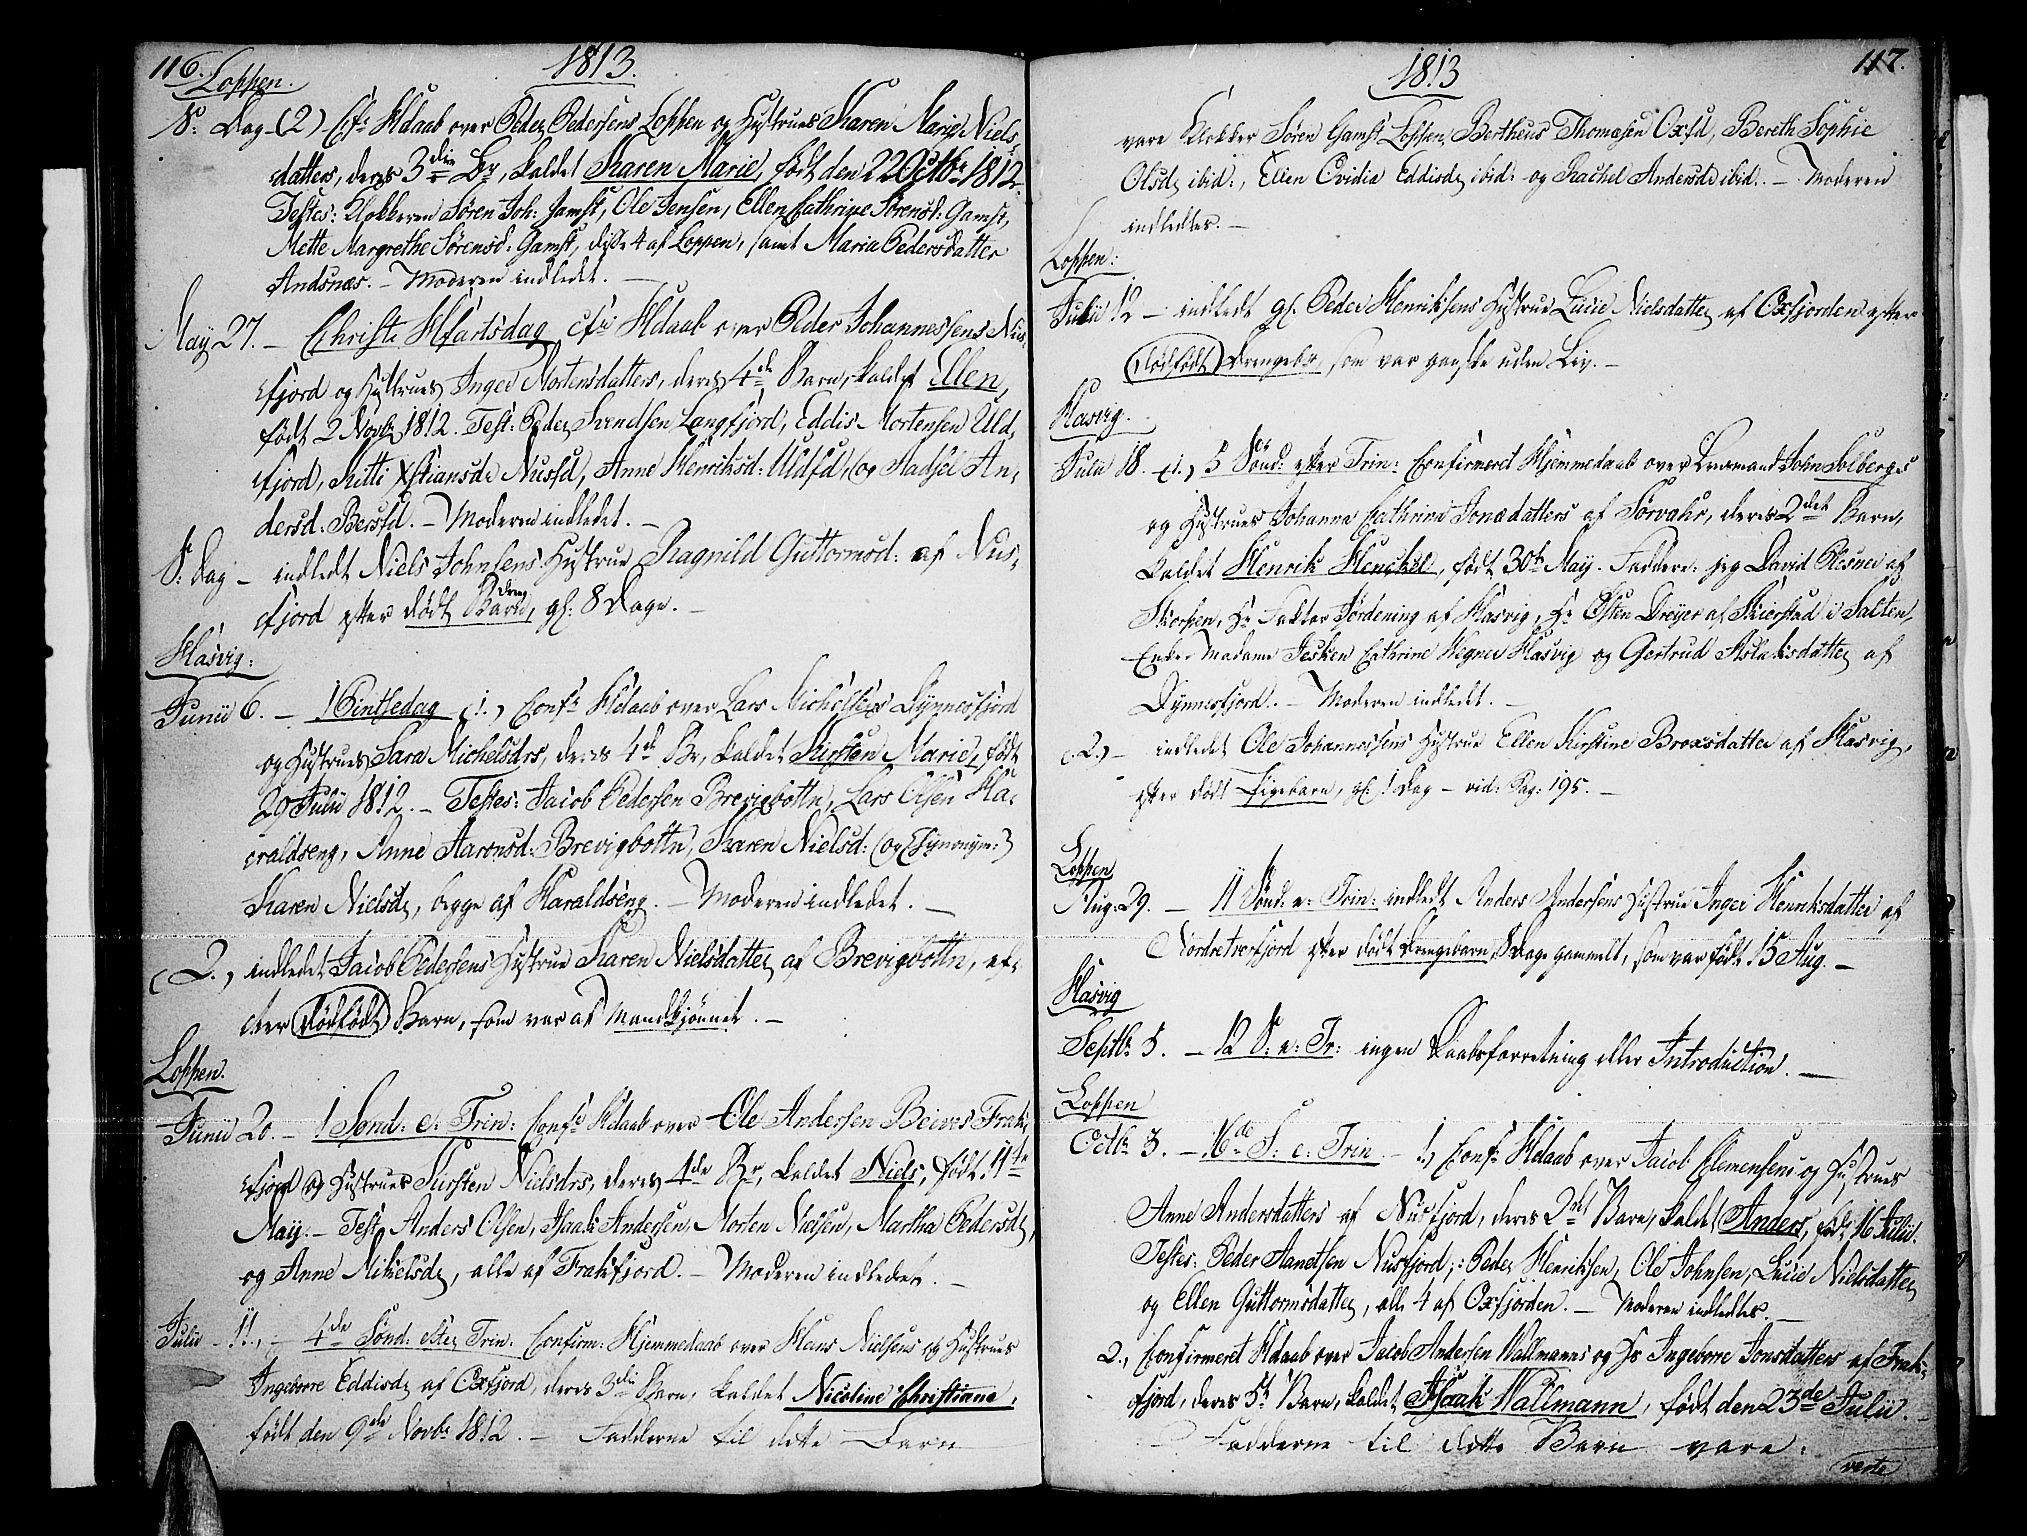 116. 1813.
Loppen.
S: Dag (2) Cfr: Hdaab over Peder Pedersens Loppen og Hustrues Karen Marie Niels-
datters, deres 3die Br, kaldet Karen Marie, født den 22 Octbr 1812.
Testes: Klokkeren Søren Joh: Gamst, Ole Jensen, Ellen Cathrine Sørensd: Gamst,
Mette Margrethe Sørensd: Gamst, disse 4 af Loppen, samt Maria Pedersdatter
Andsnæs. – Moderen indledet. –
May 27. – Christi Hfartsdag Cfr Hdaab over Peder Johannessens Nus-
fjord og Hustrues Inger Mortensdatters, deres 4de Barn, kaldet Ellen,
født 2 Novbr 1812. Test: Peder Svendsen Langfjord, Eddis Mortensen Uld-
fjord, Kitti Xstiansdr Nusfd, Anne Henriksd: Uldfd, og Aadsel An-
dersd: Bersfd. – Moderen indledet. –
S: Dag – indledt Niels Johnsens Hustrue Ragnild Guttormsd: af Nus-
fjord efter dødt Drengebarn, gl: 8 Dage. –
Hasvig:
Junii 6. – 1 Pintsedag (1.) Confr Hdaab over Lars Michelsens Dynnesfjord
og Hustrues Sara Michelsdrs, deres 4de Br, kaldet Kirsten Marie, født
29 Julii 1812. – Testes: Jacob Pedersen Brevigbottn, Lars Olsen Ha-
raldseng, Anne Aaronsd: Brevigbottn, Karen Nielsd: (og Synonym:)
Karen Nielsdr, begge af Haraldseng. – Moderen indledet. –
(2.) indledet Jacob Pedersens Hustrue Karen Nielsdatter af Brevigbottn, ef-
ter dødfødt Barn, som var af Mandkjønnet. –
Loppen:
Junii 20. – 1 Sønd: e: Trin: Confr Hdaab over Ole Andersen Beivos Frak-
fjord og Hustrues Kirsten Nielsdrs, deres 4de Br, kaldet Niels, født 11te
May. – Test: Anders Olsen, Isaak Andersen, Morten Nielsen, Martha Pedersdr,
og Anne Nikelsdr, alle af Frakfjord. – Moderen indledet. –
Julii – 11. – 4de Sønd: efter Trin: Confirm: Hjemmedaab over Hans Nielsens og Hustrues
Ingeborre Eddisdr af Oxfjord, deres 3die Barn, kaldet Nicoline Christianne,
født den 9de Novbr 1812. – Fadderne til dette Barn
1813 117.
vare Klokker Søren Gamst Loppen, Bertheus Thomasen Oxfd, Bereth Sophie
Olsdr ibid:, Ellen Ovidia Eddisdr ibid: og Rachel Andersdr ibid.. – Moderen
indledtes. –
Loppen:
Julii 12 – indledt gl. Peder Henriksens Hustrue Lucie Nielsdatter af Oxfjorden efter
dødfødt Drengebr, som var ganske uden Liv. –
Hasvig.
Julii 18. (1.) 5 Sønd: efter Trin: Confirmeret Hjemmedaab over Lensmand John Solbergs
og Hustrues Johanna Cathrina Jonædatters af Sørvahr, deres 2det Barn,
kaldet Henrik Henckel, født 30te May. Faddere: jeg David Resner af
Skorpen, Hr Faktor Fordening af Hasvig, Hr Often Dreyer af Skierstad i Salten,
Enke Madame Jesken Cathrine Wegner Hasvig og Gertrud Aslaksdatter af
Dynnesfjord. – Moderen indledet. –
(2.) – indledet Ole Johannessens Hustrue Ellen Kirstine Broxsdatter af Hasvig,
efter dødt Pigebarn, gl: 1 Dag – vid: Pag: 195. –
Loppen
Aug: 29. – 11 Sønd: e: Trin: indledt Anders Andersens Hustrue Inger Henriksdatter af
Nordretverfjord efter dødt Drengebarn, 8 Dage gammelt, som var født 15 Aug. –
Hasvig
Septbr 5. – 12 S: e: Tr: ingen Daabsforretning eller Introduction. –
Loppen
Octbr 3. – 16de S: e: Trin. – 1., Confr Hdaab over Jacob Clemensens og Hustrues
Anne Andersdatters af Nusfjord, deres 2det Barn, kaldet Anders, født 16 Julii.
Testes: Peder Aanetsen Nusfjord; : Peder Henriksen, Ole Johnsen, Lucie Nielsdatter,
og Ellen Guttormsdatter, alle 4 af Oxfjorden. – Moderen indledtes. –
2., Confirmeret Hdaab over Jacob Andersen Wallmanns og Hs Ingeborre Jonsdatters af Frak-
fjord, deres 5te Barn, kaldet Isaak Wallmann, født den 23de Julii. –
– Fadderne til dette Barn vare:
verte